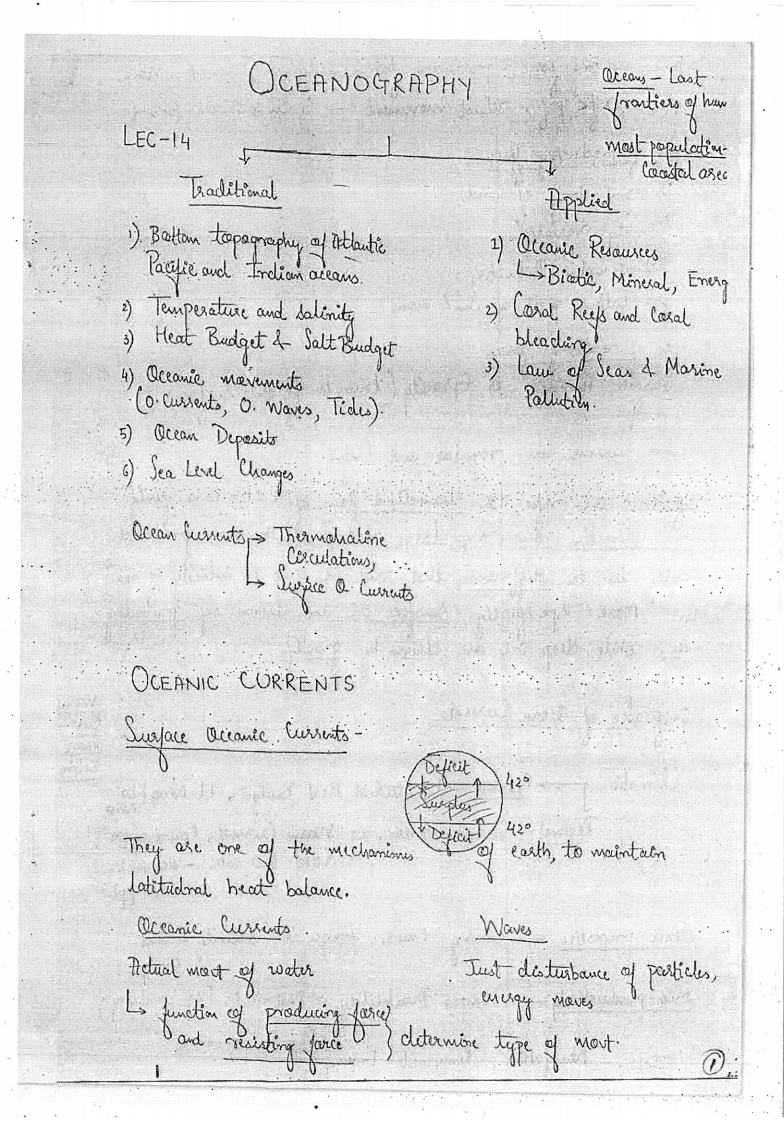 OCEANOGRAPHY
Oceans - Last
frontiers of hum
most population-
Coastal area
LEC-14
Traditional
1). Bottom topography of Atlantic
Pacific and Indian oceans.
2) Temperature and salinity
3) Heat Budget & Salt Budget
4) Oceanic movements
(O. Currents, O. Waves, Tides).
5) Ocean Deposits
6) Sea Level Changes
Applied
1) Oceanic Resources
→ Biotic, Mineral, Energ
2) Coral Reefs and Coral
bleaching
3) Law of Seas & Marine
Pollution.
Ocean Currents → Thermohaline
Circulations,
→ Surface O. Currents
OCEANIC CURRENTS
Surface Oceanic Currents -
Deficit
42°
Surplus
42°
Deficit
They are one of the mechanisms of earth, to maintain
latitudnal heat balance.
Oceanic Currents
Actual movt of water
→ function of producing force
and resisting force } determine type of movt.
Waves
Just disturbance of particles,
energy moves
1